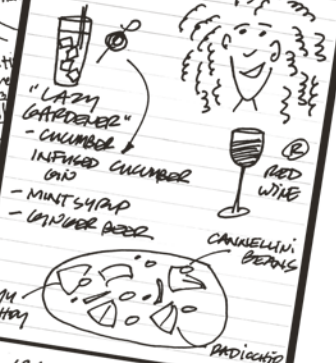 "LAZY
GARDENER"
- CUCUMBER
INFUSED CUCUMBER
GIN
- MINT SYRUP
- GINGER BEER
R
RED
WINE
CANNELLINI
BEANS
RADICCHIO